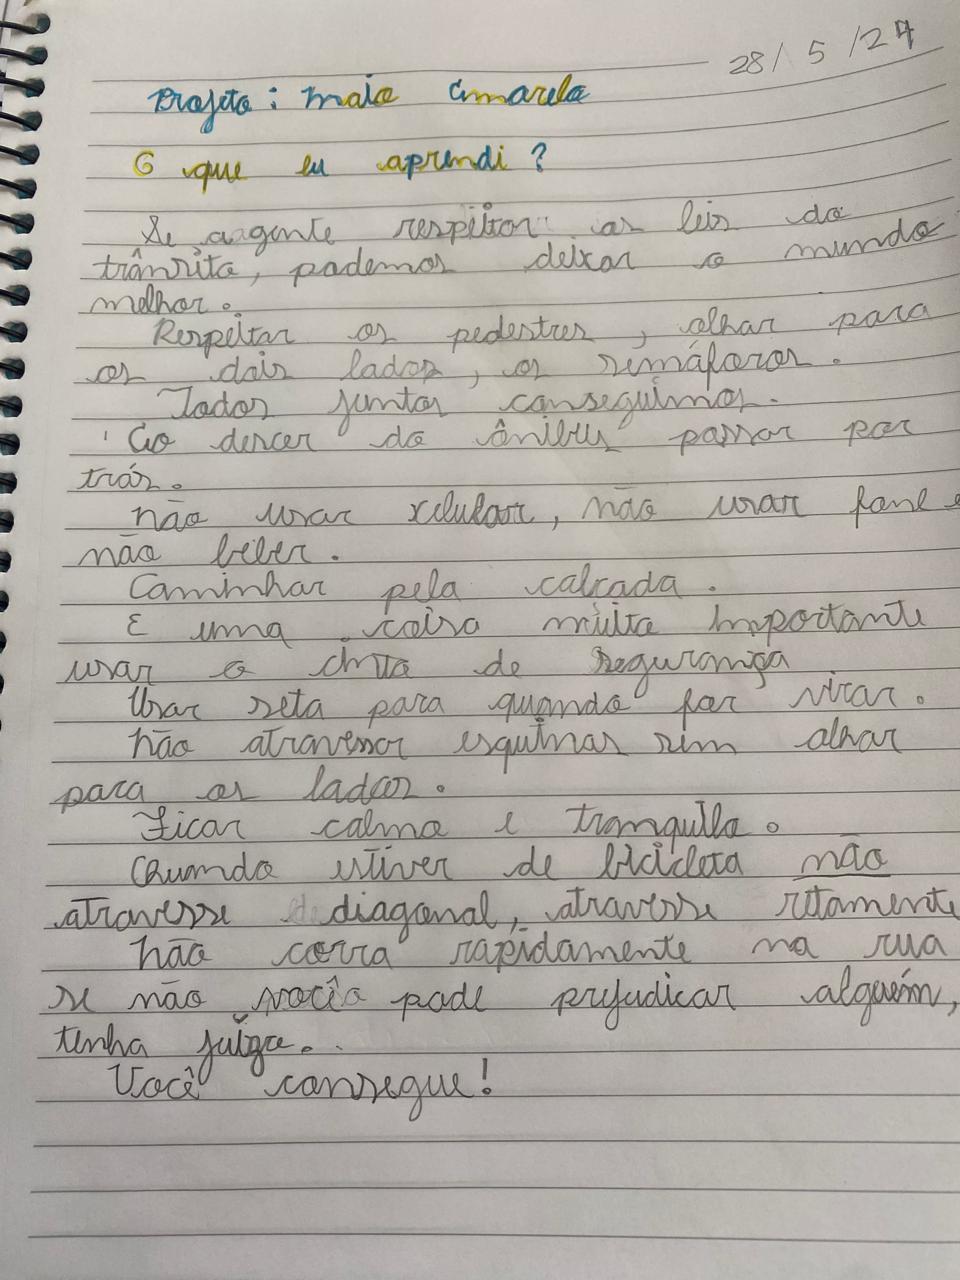 28/5/24
Projeto: maio amarelo
O que eu aprendi?
Se aagente respeitar as leis do
trânsito, podemos deixar o mundo
melhor.
Respeitar os pedestres, olhar para
os dois lados, os semáforos.
Todos juntos conseguimos.
Ao descer do ônibus passar por
trás.
não usar xelular, não usar fone e
não beber.
Caminhar pela calçada.
E uma coisa muita importante
usar o cinto de segurança
Usar seta para quando for virar.
não atravessar esquinas sem olhar
para os lados.
Ficar calmo e tranquilo.
Quando estiver de bicicleta não
atravesse diagonal, atravesse retamente
não corra rapidamente na rua
se não você pode prejudicar alguém,
tenha juízo.
Você consegue!